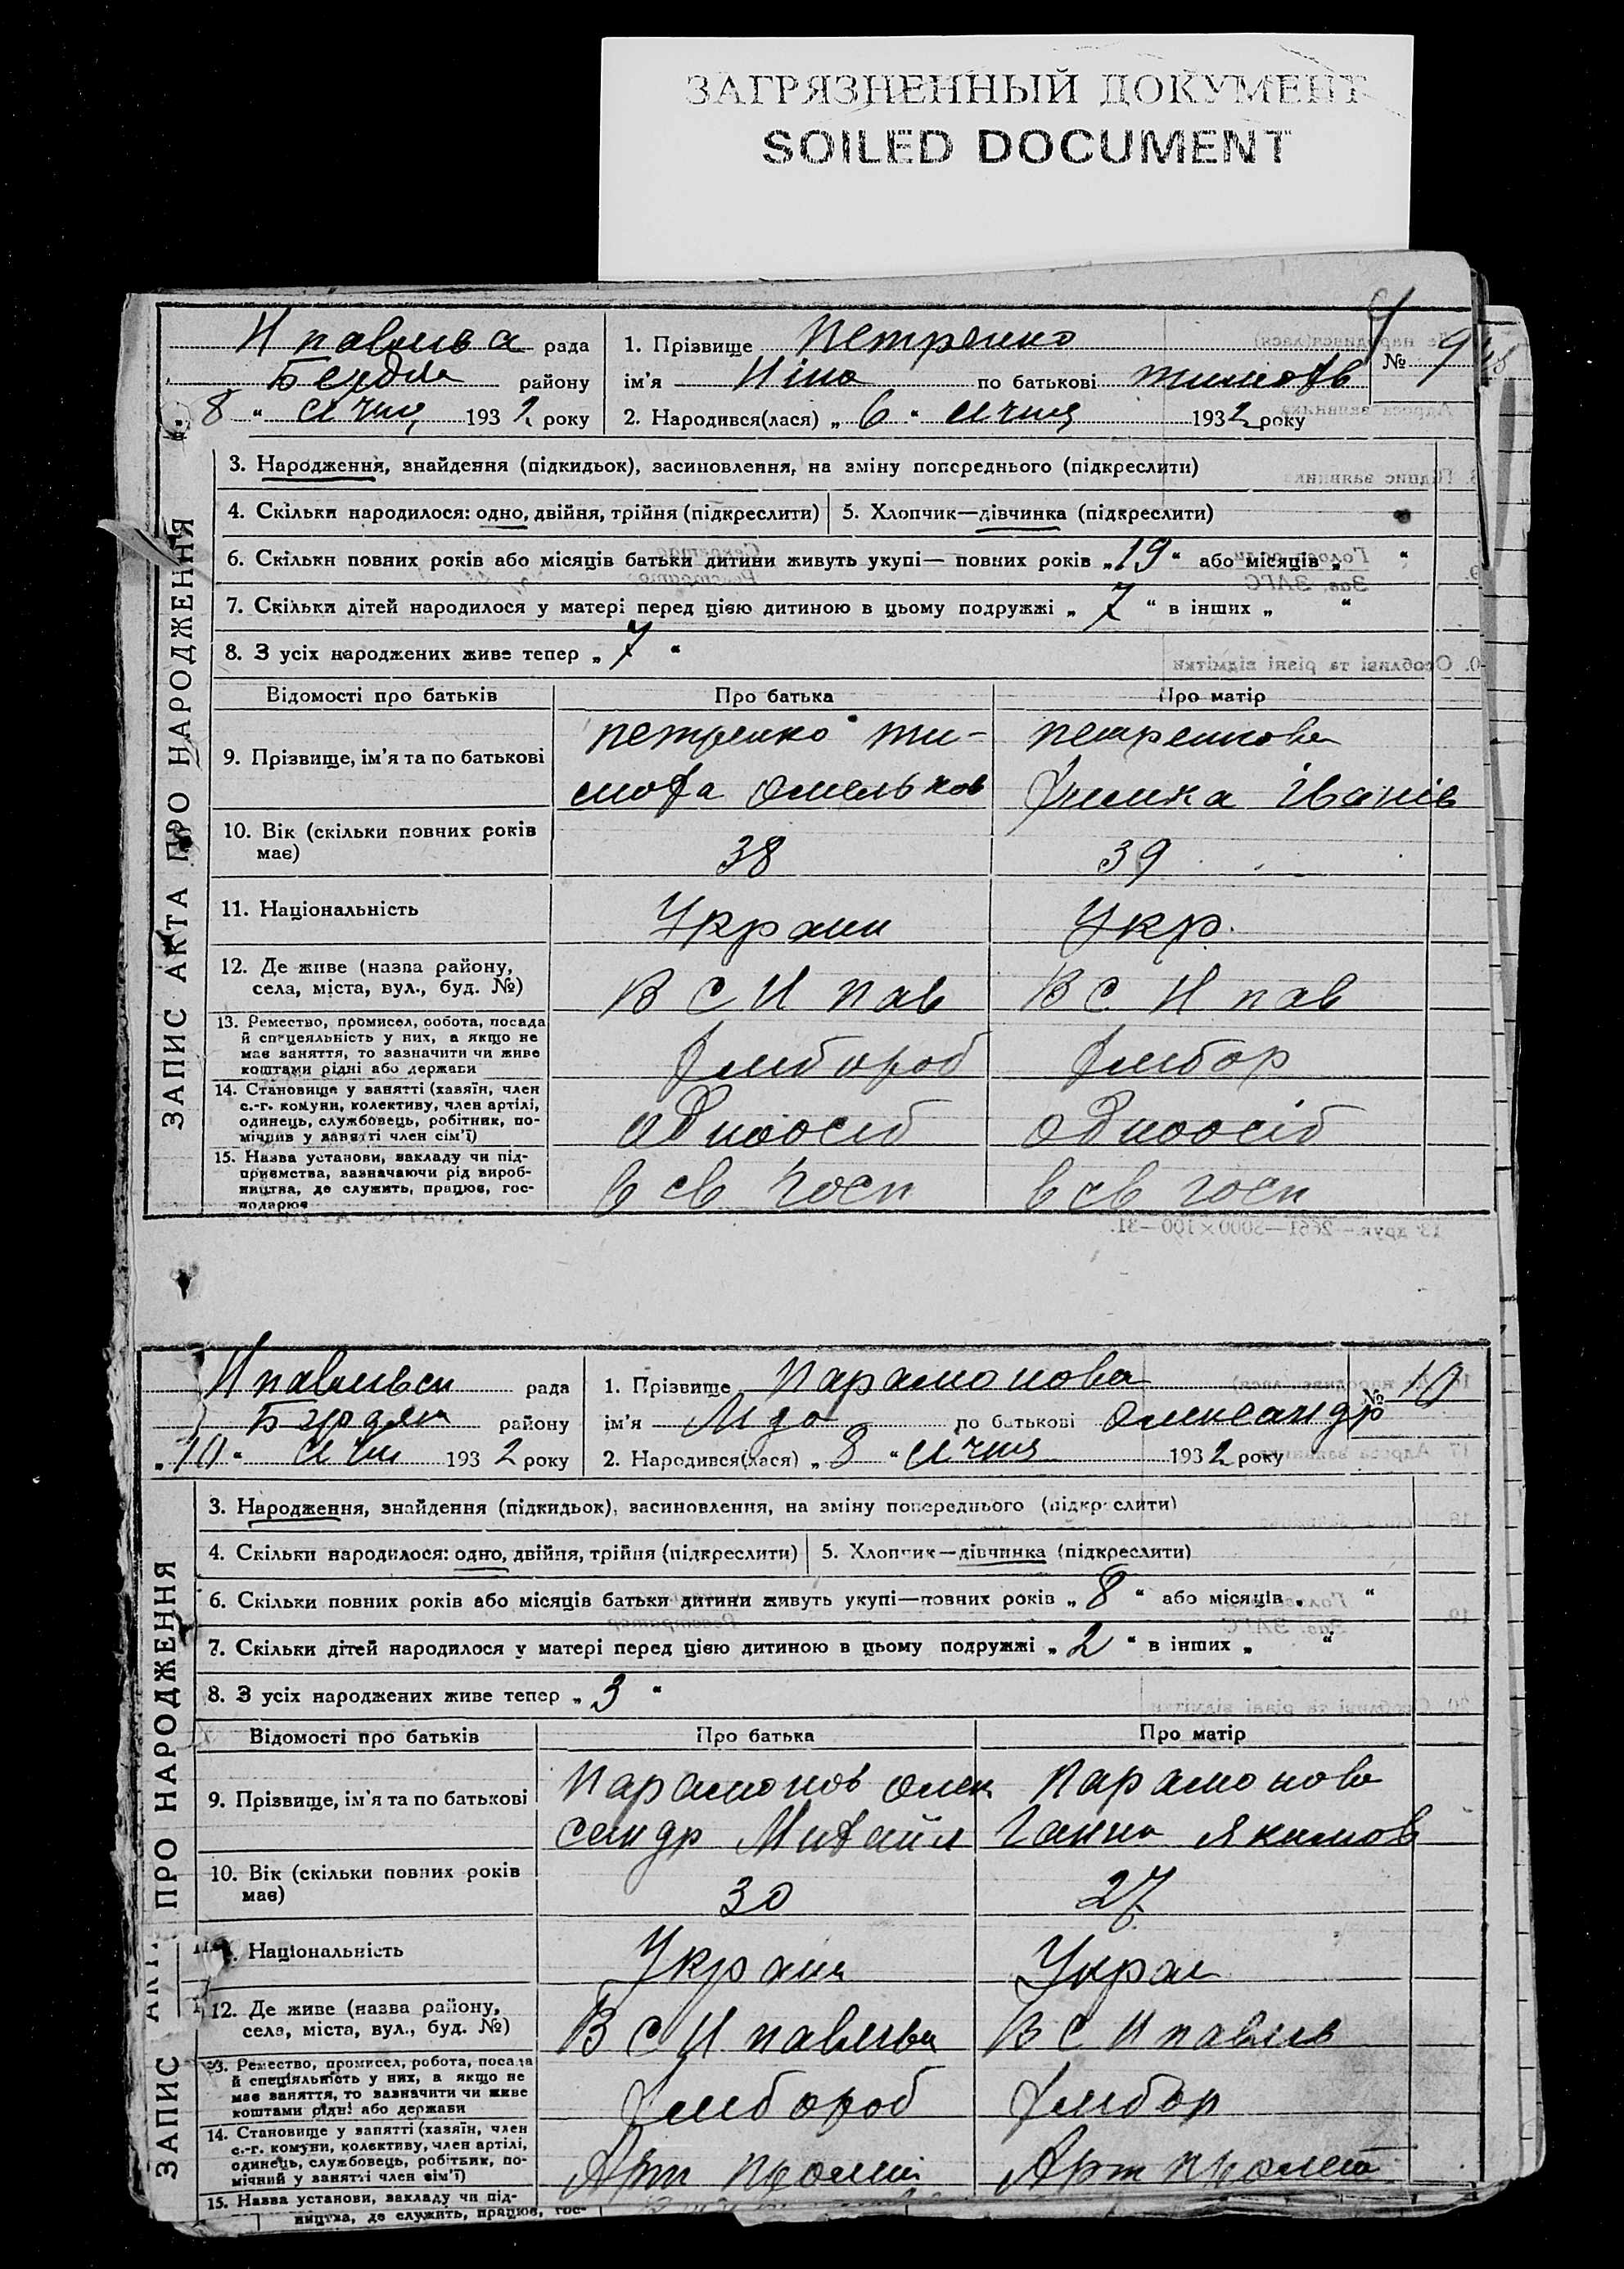 ЗАГРЯЗНЕННЫЙ ДОКУМЕНТ
SOILED DOCUMENT
рада
району
8 " січня 1932 року
1. Прізвище Петренко
№ 9
ім'я Ніна по батькові Тимофів
2. Народився(лася) „ 6 " січня 1932 року
ЗАПИС АКТА ПРО НАРОДЖЕННЯ
3. Народження, знайдення (підкидьок), засиновлення, на зміну попереднього (підкреслити)
4. Скільки народилося: одно, двійня, трійня (підкреслити)
5. Хлопчик—дівчинка (підкреслити)
6. Скільки повних років або місяців батьки дитини живуть укупі— повних років „ 19 " або місяців „ "
7. Скільки дітей народилося у матері перед цією дитиною в цьому подружжі „ 7 " в інших „ "
8. З усіх народжених живе тепер „ 7 "
Відомості про батьків Про батька Про матір
9. Прізвище, ім'я та по батькові
Петренко Ти-
мофа Омельков
Петренкова
Іванів
10. Вік (скільки повних років має) 38 39
11. Національність Украин Укр.
12. Де живе (назва району, села, міста, вул., буд. №) В С Н пав В С Н пав
13. Ремество, промисел, робота, посада
й спецеяльність у них, а якщо не
має заняття, то зазначити чи живе
коштами рідні або держави
Хлібороб Хлібор
14. Становище у занятті (хазяїн, член
с.-г. комуни, колективу, член артілі,
одинець, службовець, робітник, по-
мічник у занятті член сім'ї)
одноосіб одноосіб
15. Назва установи, закладу чи під-
приємства, зазначаючи рід вироб-
ництва, де служить, працює, гос-
подарює
в св госп в св госп
13 друк.— 2661—5000×100—31.
рада
району
„ 10 " січ 1932 року
1. Прізвище Парамонова
№ 10
ім'я Ліда по батькові Олександр
2. Народився(лася) „ 8 " січня 1932 року
ЗАПИС АКТ ПРО НАРОДЖЕННЯ
3. Народження, знайдення (підкидьок), засиновлення, на зміну попереднього (підкреслити)
4. Скільки народилося: одно, двійня, трійня (підкреслити)
5. Хлопчик—дівчинка (підкреслити)
6. Скільки повних років або місяців батьки дитини живуть укупі—повних років „ 8 " або місяців „ "
7. Скільки дітей народилося у матері перед цією дитиною в цьому подружжі „ 2 " в інших „ "
8. З усіх народжених живе тепер „ 3 "
Відомості про батьків Про батька Про матір
9. Прізвище, ім'я та по батькові
Парамонов Олек
сандр Михайл
Парамонова
Ганна Якимов
10. Вік (скільки повних років має) 30 27
Національність Украин Украи
12. Де живе (назва району, села, міста, вул., буд. №) В С Н павлівка В С Н павлів
13. Ремество, промисел, робота, посада
й спеціяльність у них, а якщо не
має заняття, то зазначити чи живе
коштами рідні або держави
Хлібороб Хлібор
14. Становище у занятті (хазяїн, член
с.-г. комуни, колективу, член артілі,
одинець, службовець, робітник, по-
мічний у занятті член сім'ї)
Арт Арт
15. Назва установи, закладу чи під-
ництва, де служить, працює, гос-